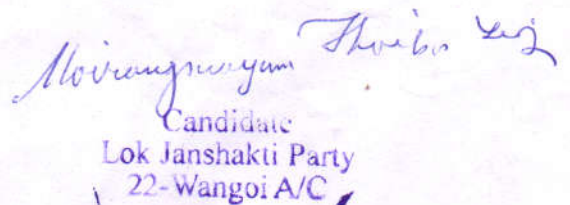 Moirangmayum Thoiba
Candidate
Lok Janshakti Party
22-Wangoi A/C